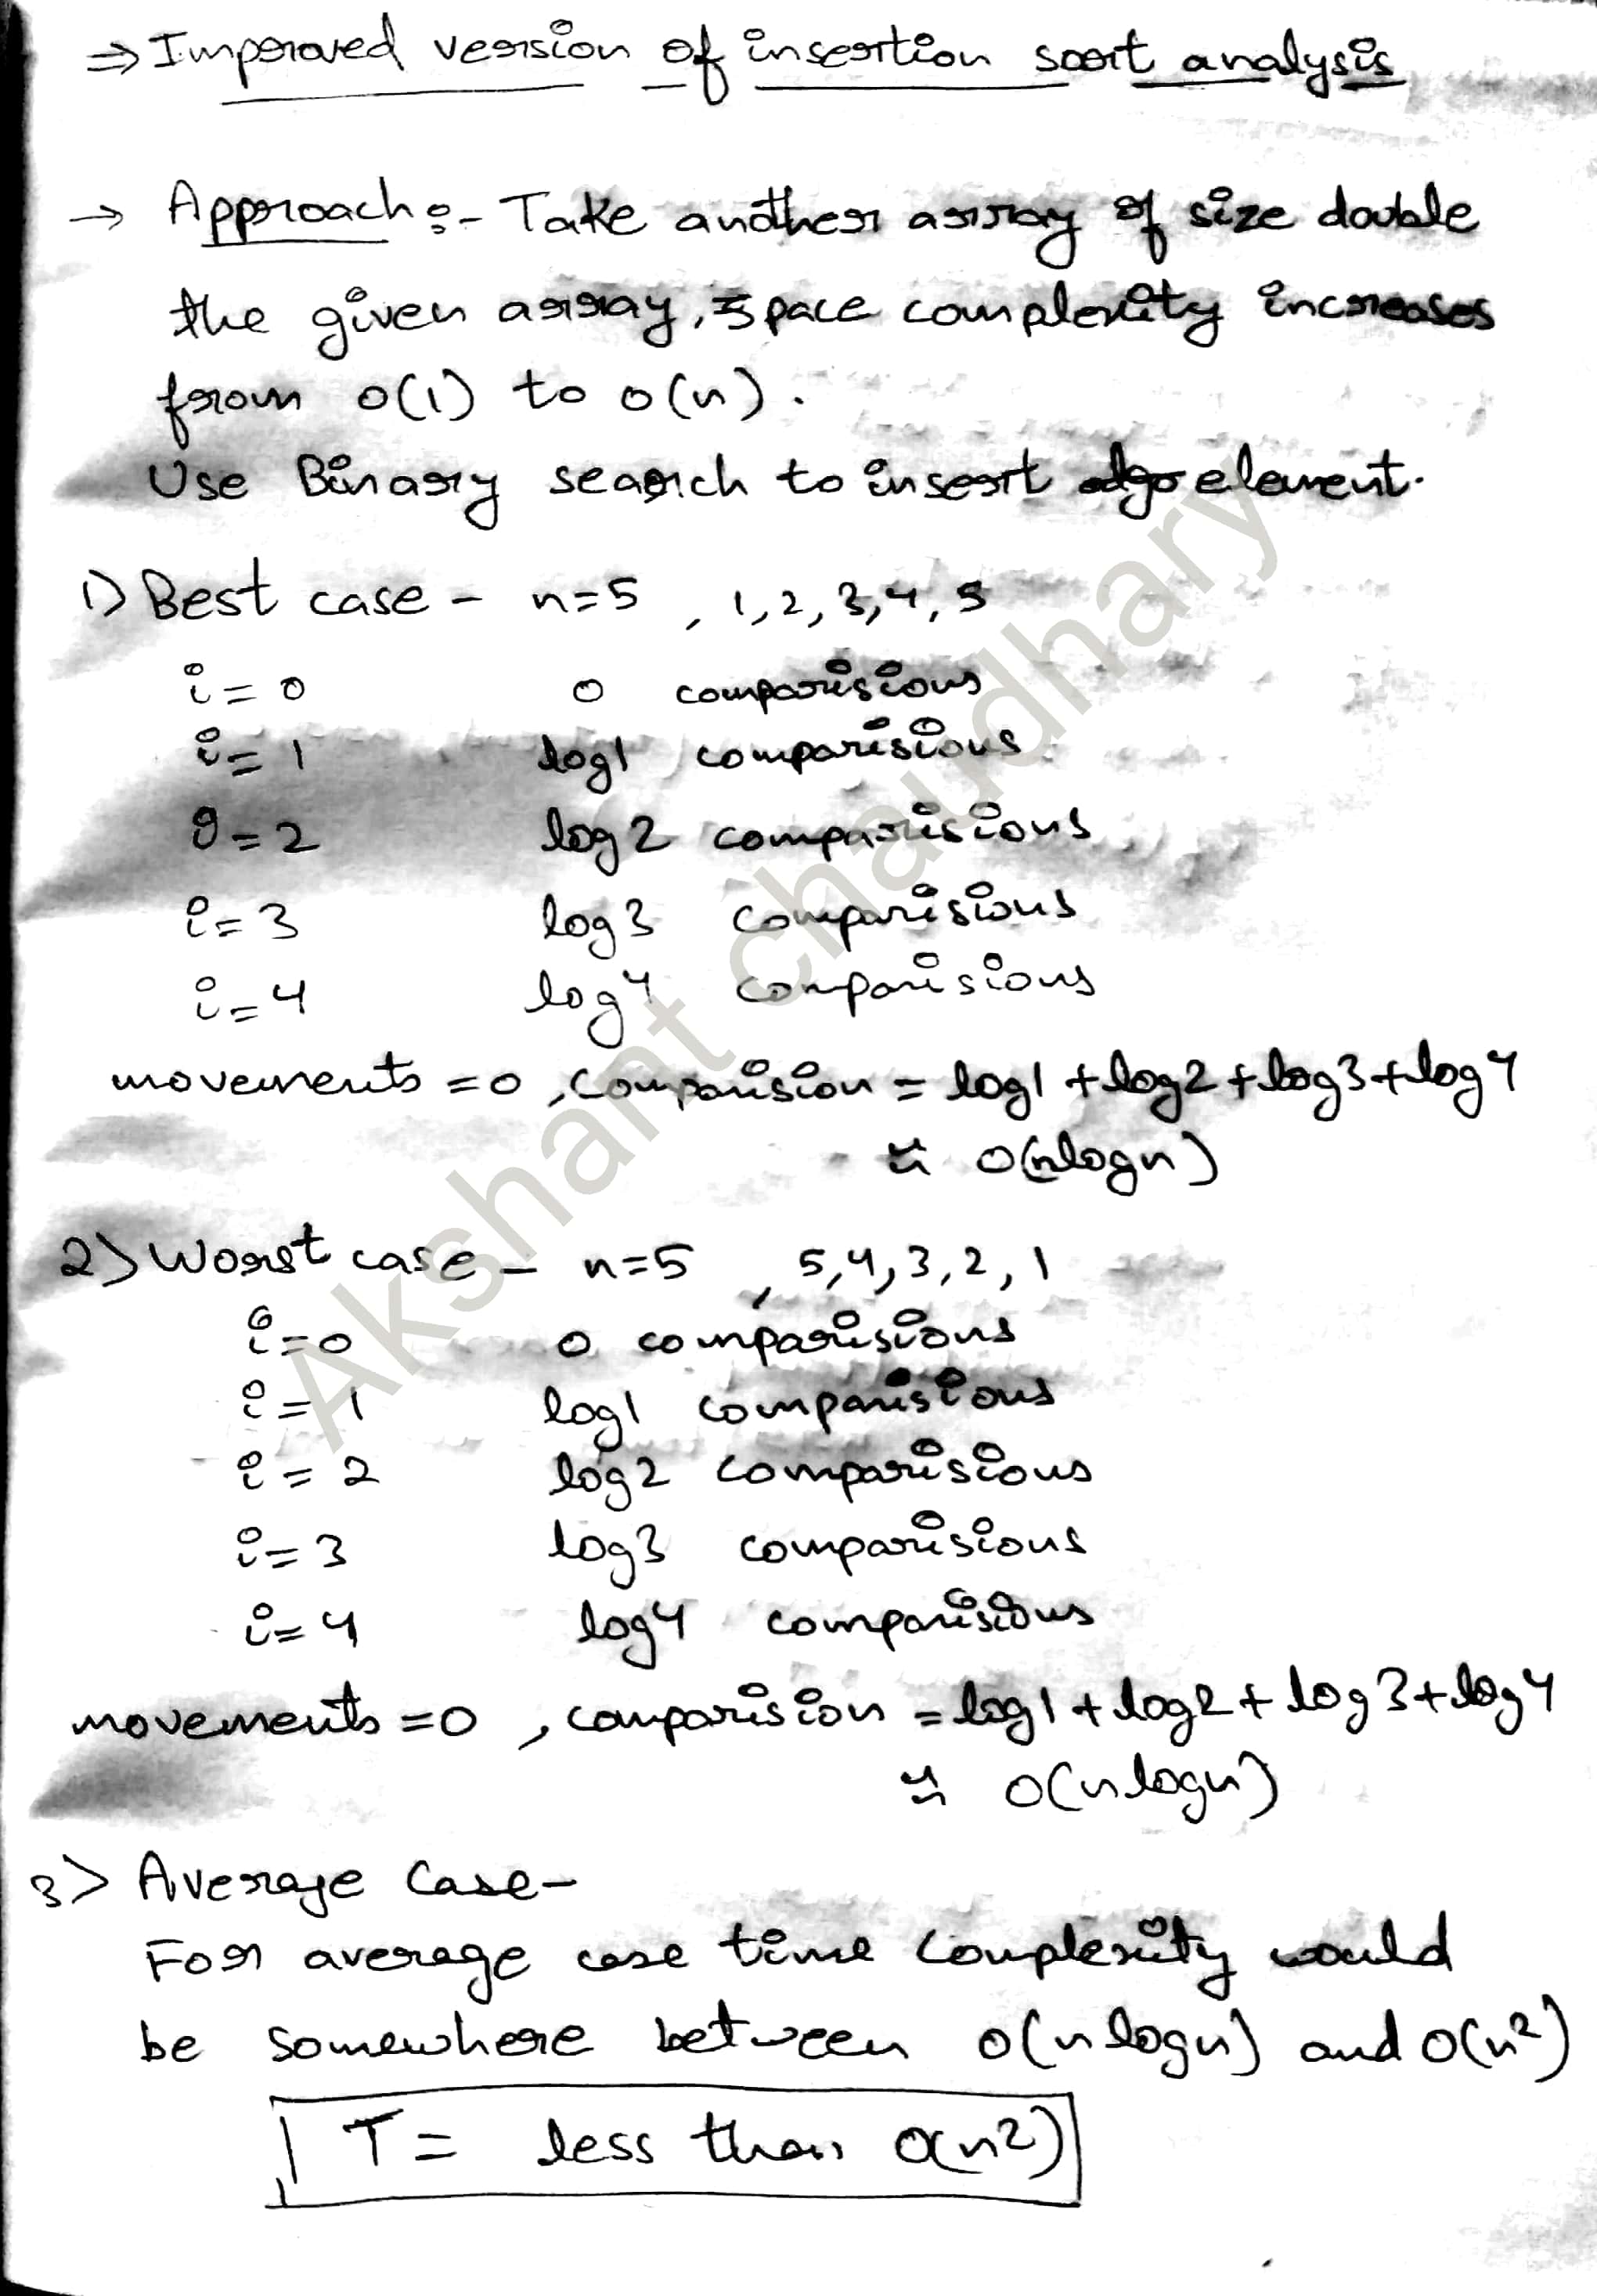 ⇒ Improved version of insertion sort analysis
→ Approach :- Take another array of size double
the given array, space complexity increases
from o(1) to o(n).
Use Binary search to insert element.
1) Best case - n=5 , 1,2,3,4,5
i=0 0 comparisions
i=1 log1 comparisions
i=2 log2 comparisions
i=3 log3 comparisions
i=4 log4 comparisions
movements =0 , comparision = log1 + log2 + log3 + log4
≈ o(nlogn)
2) Worst case - n=5 , 5,4,3,2,1
i=0 0 comparisions
i=1 log1 comparisions
i=2 log2 comparisions
i=3 log3 comparisions
i=4 log4 comparisions
movements =0 , comparision = log1 + log2 + log3 + log4
≈ o(nlogn)
3) Average Case-
For average case time complexity would
be somewhere between o(nlogn) and o(n²)
T = less than o(n²)
Akshant chaudhary